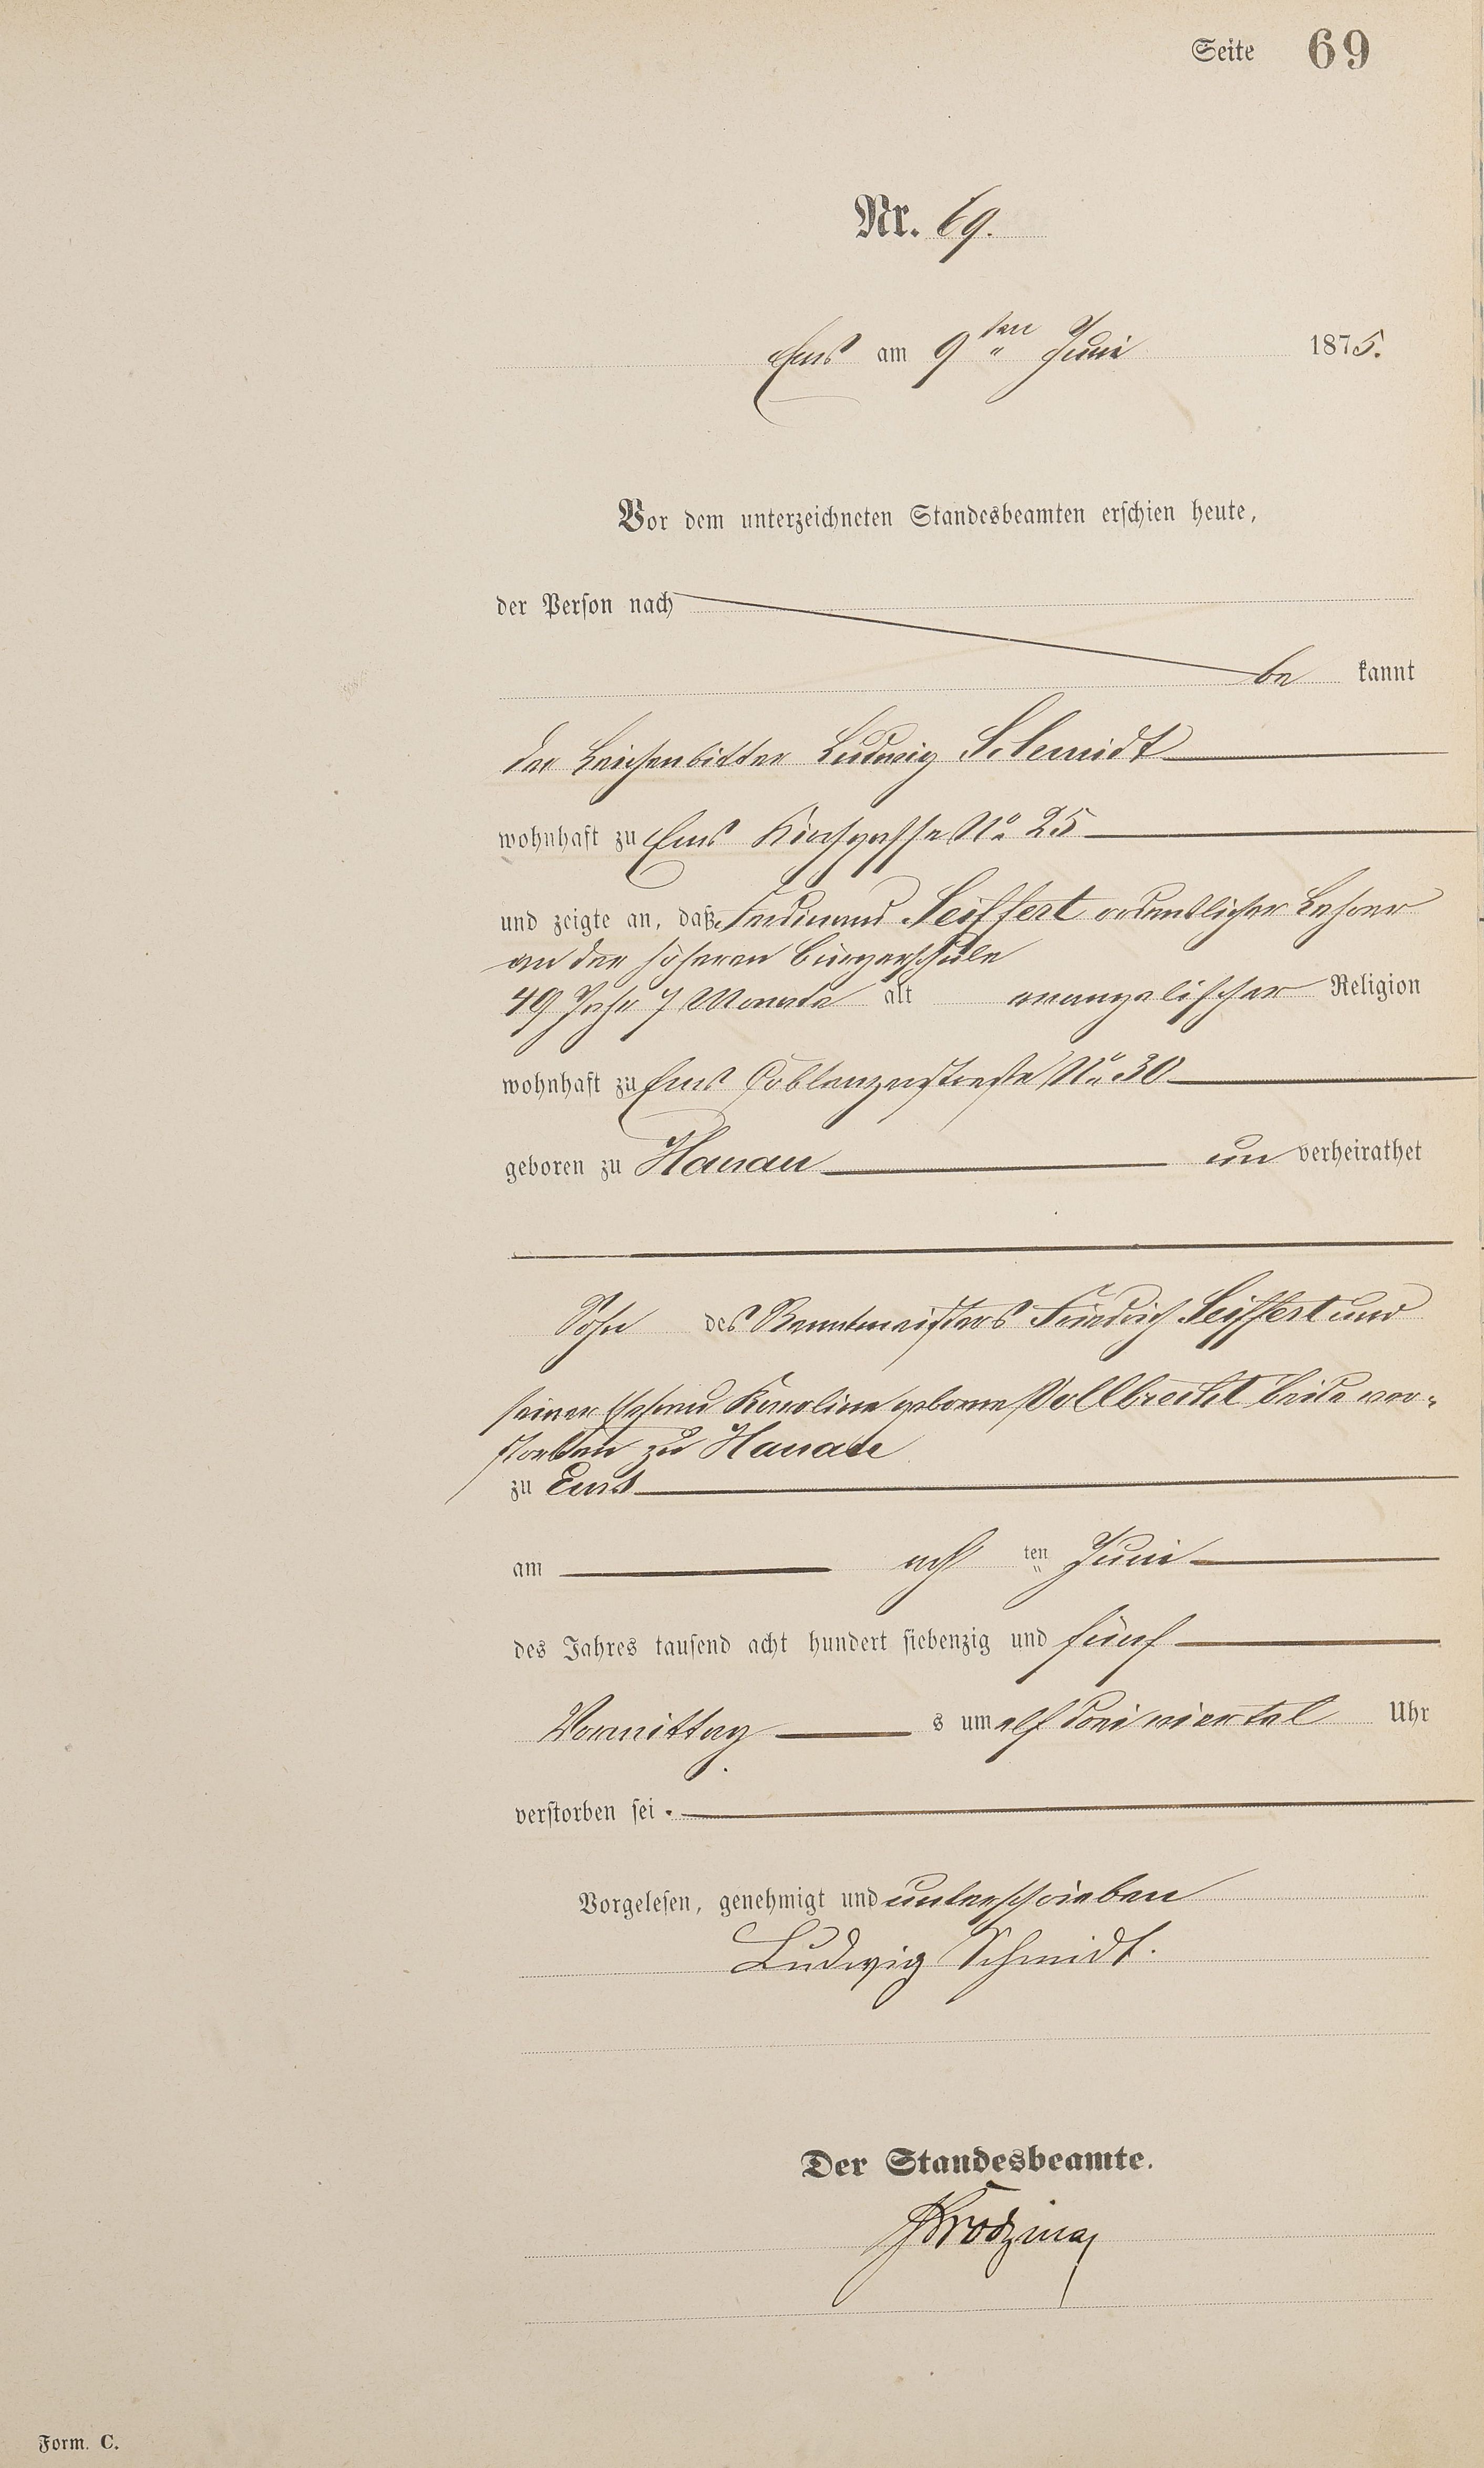 Seite 69
Nr. 69.
Ems am 9ten Juni 1875.
Vor dem unterzeichneten Standesbeamten erschien heute,
der Person nach
be kannt
der Leichenbitter Ludwig Schmidt
wohnhaft zu Ems Kirchgasse No 25
und zeigte an, daß Ferdinand Seiffert ordentlicher Lehrer
an der höheren Bürgerschule
49 Jahr 7 Monate alt evangelischer Religion
wohnhaft zu Ems Coblenzerstraße No 30
geboren zu Hanau un verheirathet
Sohn des Rentmeisters Friedrich Seiffert und
seiner Ehefrau Karoline geborne Vollbrecht beide ver-
storben zu Hanau
zu Ems
am acht ten Juni
des Jahres tausend acht hundert siebenzig und fünf
Vormittag s um elf dreiviertel Uhr
verstorben sei.
Vorgelesen, genehmigt und unterschrieben
Ludwig Schmidt.
Der Standesbeamte.
Form. C.